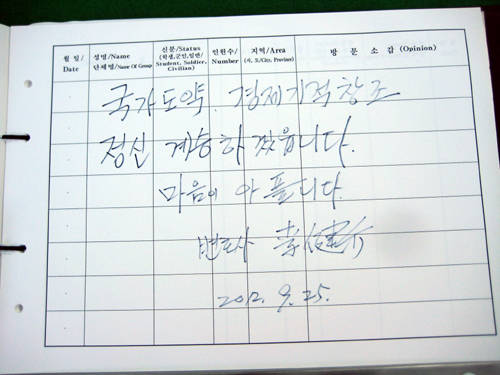 월 일/Date 성명/Name 단체명/Name Of Group 신분/Status (학생,군인,일반/Student, Soldier, Civilian) 인원수/Number 지역/Area (시, 도/City, Province) 방 문 소 감 (Opinion)
국가도약. 경제기적창조
정신 계승하겠읍니다.
마음이 아픕니다.
변호사 李健介
2012. 9. 25.